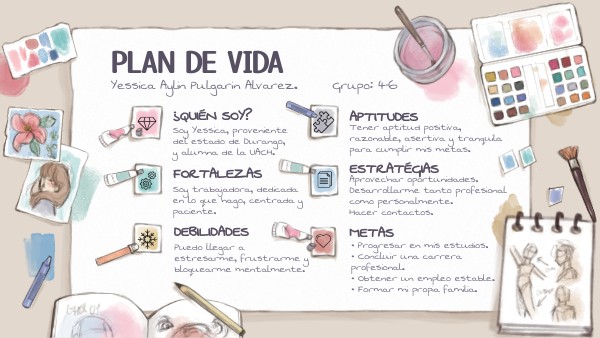 PLAN DE VIDA
Yessica Aylin Pulgarin Alvarez.
Grupo: 4-6
¿QUIÉN SOY?
Soy Yessica, proveniente
del estado de Durango,
y alumna de la UACH.
FORTALEZAS
Soy trabajadora, dedicada
en lo que hago, centrada y
paciente.
DEBILIDADES
Puedo llegar a
estresarme, frustrarme y
bloquearme mentalmente.
APTITUDES
Tener aptitud positiva,
razonable, asertiva y tranquila
para cumplir mis metas.
ESTRATÉGIAS
Aprovechar oportunidades.
Desarrollarme tanto profesional
como personalmente.
Hacer contactos.
METAS
• Progresar en mis estudios.
• Concluir una carrera
profesional.
• Obtener un empleo estable.
• Formar mi propa familia.